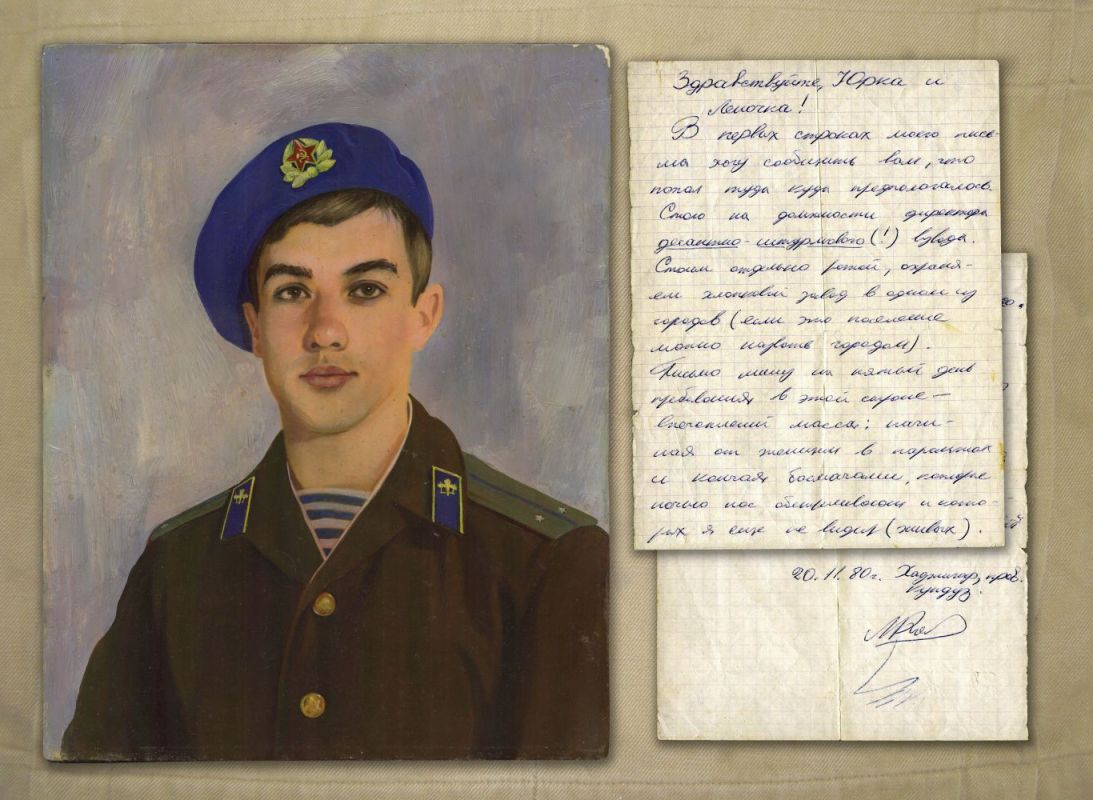 Здравствуйте, Юрка и
Леночка!
В первых строках моего пись-
ма хочу сообщить вам, что
попал туда куда предпологалось.
Стою на должности директора
десантно-штурмового(!) взвода.
Стоим отдельно ротой, охраня-
ем хлопковый завод в одном из
городов (если это поселение
можно назвать городом).
Письмо пишу на пятый день
пребывания в этой стране —
впечатлений масса: начи-
ная от женщин в паранджах
и кончая басмачами, которые
ночью нас обстреливают и кото-
рых я еще не видел (живых).
20.11.80г. Хаджигар, пров.
Кундуз.